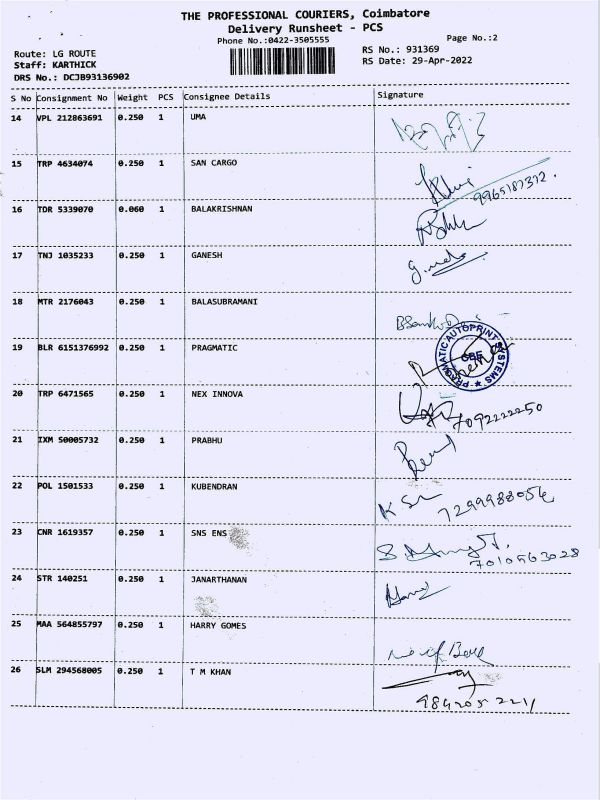 THE PROFESSIONAL COURIERS, Coimbatore
Delivery Runsheet - PCS
Phone No.:0422-3505555
Page No.:2
Route: LG ROUTE
Staff: KARTHICK
DRS No.: DCJB93136902
RS No.: 931369
RS Date: 29-Apr-2022
S No Consignment No Weight PCS Consignee Details Signature
14 VPL 212863691 0.250 1 UMA
15 TRP 4634074 0.250 1 SAN CARGO
9965187372.
16 TDR 5339070 0.060 1 BALAKRISHNAN
17 TNJ 1035233 0.250 1 GANESH
18 MTR 2176043 0.250 1 BALASUBRAMANI
19 BLR 6151376992 0.250 1 PRAGMATIC
PRAGMATIC AUTOPRINT SYSTEMS ★
CBE
20 TRP 6471565 0.250 1 NEX INNOVA
7092222250
21 IXM 50005732 0.250 1 PRABHU
22 POL 1501533 0.250 1 KUBENDRAN
7299988056
23 CNR 1619357 0.250 1 SNS ENS
7010563028
24 STR 140251 0.250 1 JANARTHANAN
25 MAA 564855797 0.250 1 HARRY GOMES
26 SLM 294568005 0.250 1 T M KHAN
9842052211